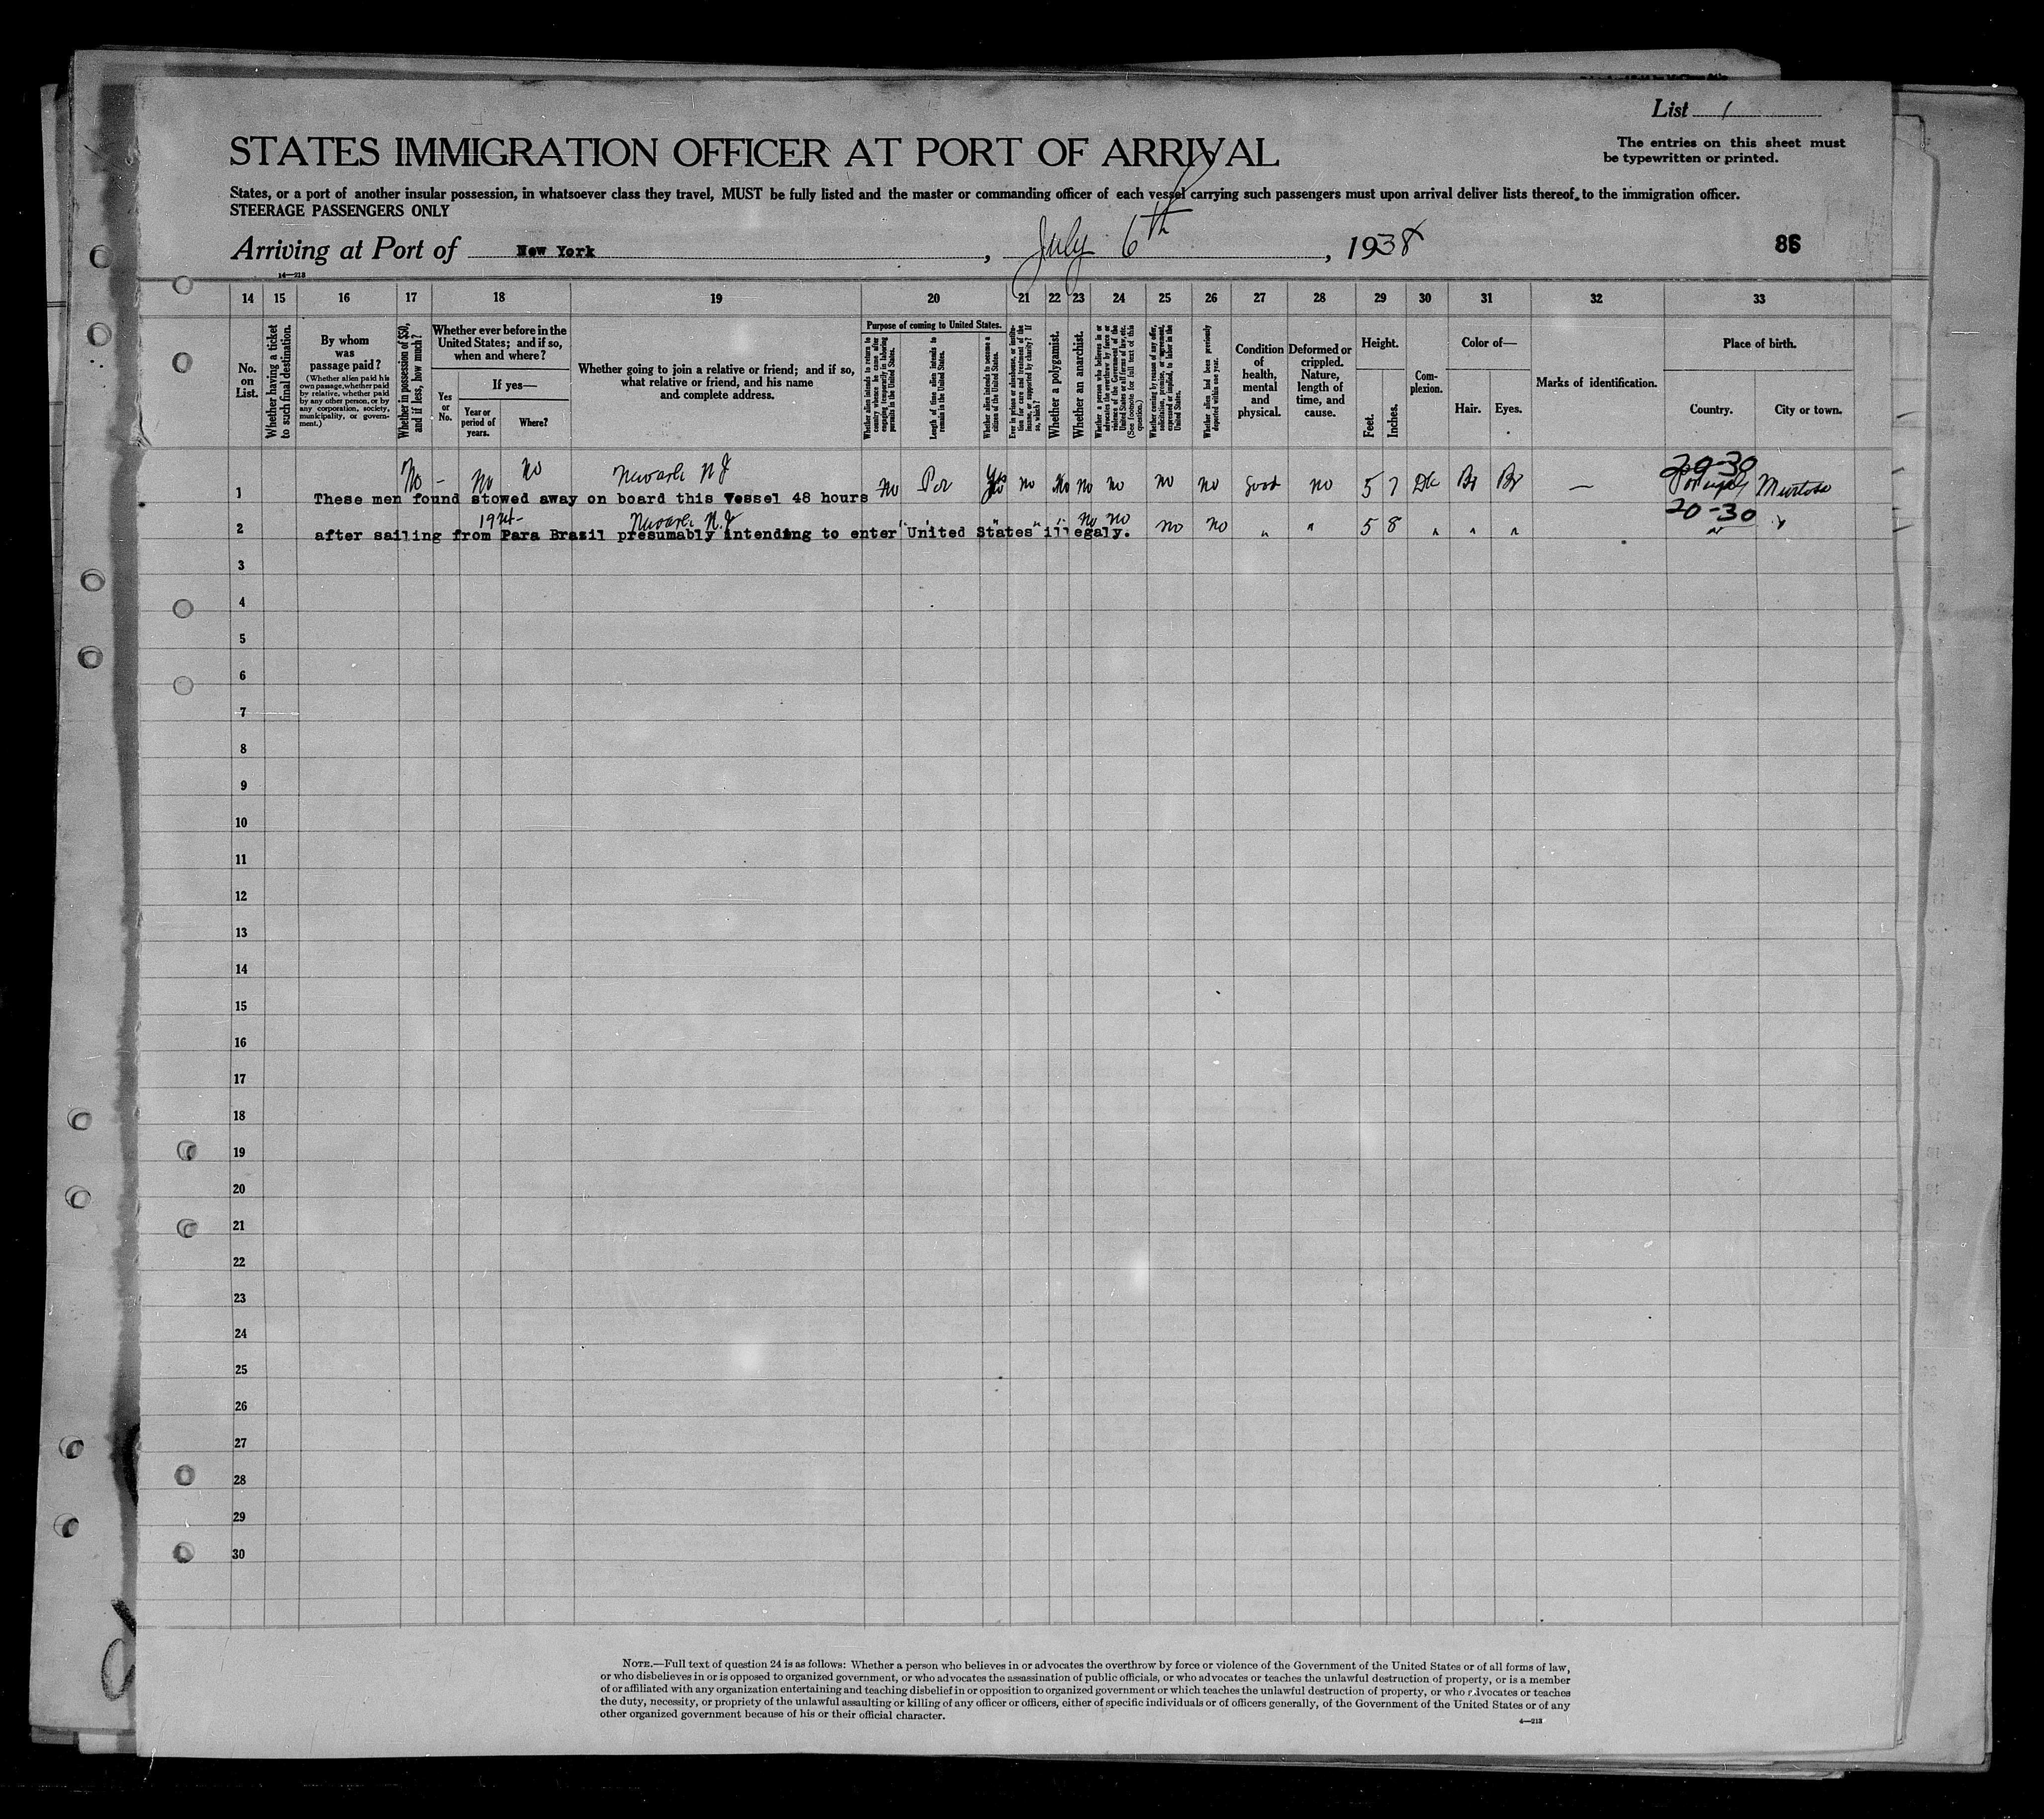 List 1
The entries on this sheet must
be typewritten or printed.
STATES IMMIGRATION OFFICER AT PORT OF ARRIVAL
States, or a port of another insular possession, in whatsoever class they travel, MUST be fully listed and the master or commanding officer of each vessel carrying such passengers must upon arrival deliver lists thereof to the immigration officer.
STEERAGE PASSENGERS ONLY
Arriving at Port of New York, July 6th, 1938
86
14—213
14 15 16 17 18 19 20 21 22 23 24 25 26 27 28 29 30 31 32 33
No. on List.
Whether having a ticket to such final destination.
By whom was passage paid?
(Whether alien paid his own passage, whether paid by relative, whether paid by any other person, or by any corporation, society, municipality, or government.)
Whether in possession of $50, and if less, how much?
Whether ever before in the United States; and if so, when and where?
Yes or No.
If yes—
Year or period of years.
Where?
Whether going to join a relative or friend; and if so, what relative or friend, and his name and complete address.
Purpose of coming to United States.
Whether alien intends to return to country whence he came after engaging temporarily in laboring pursuits in the United States.
Length of time alien intends to remain in the United States.
Whether alien intends to become a citizen of the United States.
Ever in prison or almshouse, or institution for care and treatment of the insane, or supported by charity? If so, which?
Whether a polygamist.
Whether an anarchist.
Whether a person who believes in or advocates the overthrow by force or violence of the Government of the United States or all forms of law, etc. (See footnote for full text of this question.)
Whether coming by reason of any offer, solicitation, promise, or agreement, expressed or implied, to labor in the United States.
Whether alien had been previously deported within one year.
Condition of health, mental and physical.
Deformed or crippled. Nature, length of time, and cause.
Height.
Feet.
Inches.
Complexion.
Color of—
Hair.
Eyes.
Marks of identification.
Place of birth.
Country.
City or town.
No - No no Newark N J no Per Yes no No no no no no good no 5 7 Dk Br Br — 20-30 Portugal Murtosa
1 These men found stowed away on board this Vessel 48 hours
1924- Newark N.J " " " " " no no no no " " 5 8 " " " 20-30 " "
2 after sailing from Para Brasil presumably intending to enter United States illegaly.
3
4
5
6
7
8
9
10
11
12
13
14
15
16
17
18
19
20
21
22
23
24
25
26
27
28
29
30
NOTE.—Full text of question 24 is as follows: Whether a person who believes in or advocates the overthrow by force or violence of the Government of the United States or of all forms of law,
or who disbelieves in or is opposed to organized government, or who advocates the assassination of public officials, or who advocates or teaches the unlawful destruction of property, or is a member
of or affiliated with any organization entertaining and teaching disbelief in or opposition to organized government or which teaches the unlawful destruction of property, or who advocates or teaches
the duty, necessity, or propriety of the unlawful assaulting or killing of any officer or officers, either of specific individuals or of officers generally, of the Government of the United States or of any
other organized government because of his or their official character.
4—213